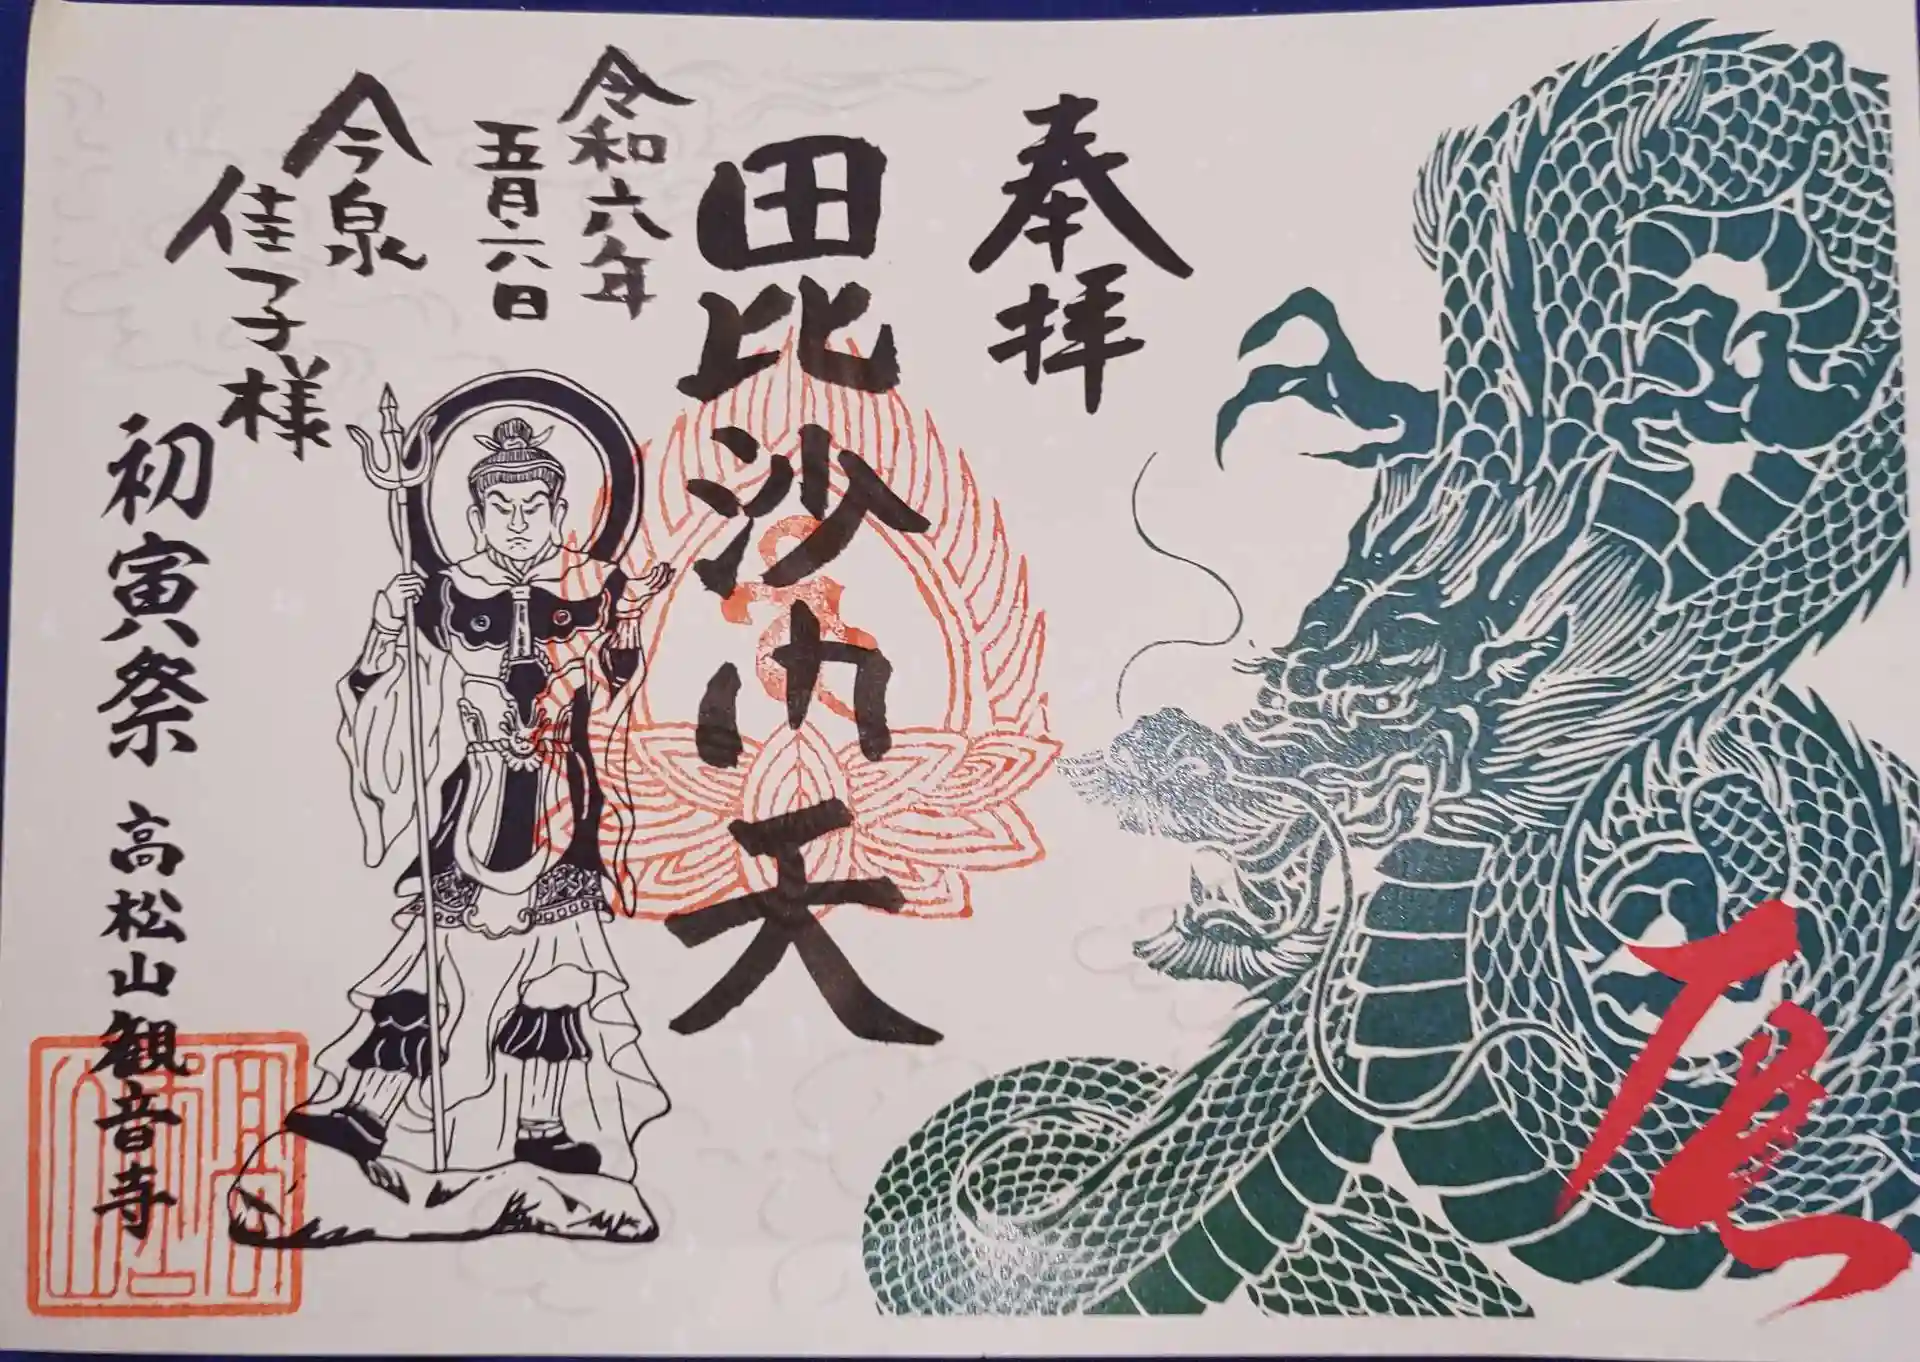 奉拝
毘沙門天
令和六年
五月六日
今泉
佳子様
初寅祭 高松山観音寺
辰